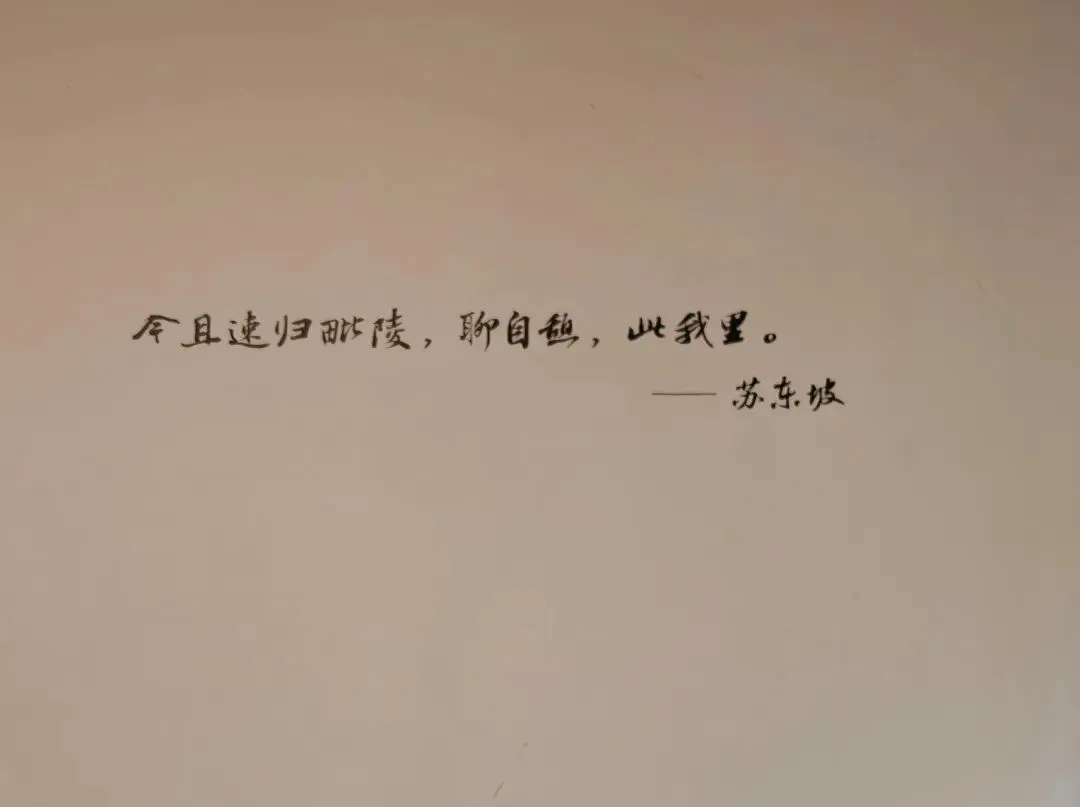 今且速归毗陵，聊自憩，此我里。
—— 苏东坡